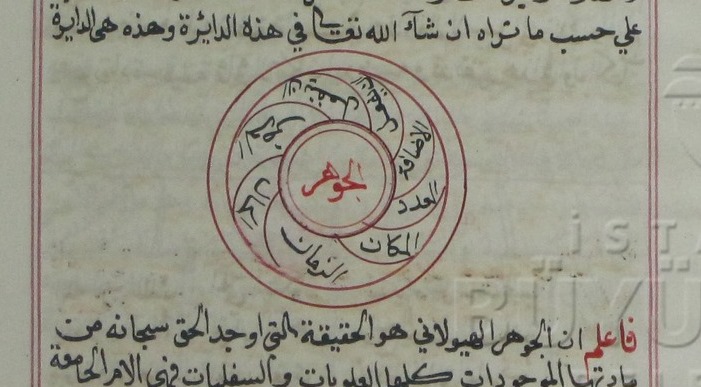 علي حسب ما تراه ان شآء الله تعالى في هذة الدايرة وهذه هى الدايرة
الجوهر
الاضافة
العدد
المكان
الزمان
الحال
العرض
ان ينفعل
ان يفعل
فاعلم ان الجوهر الهيولاني هو الحقيقة التي اوجد الحق سبحانه من
مادتها الموجودات كلها العلويات والسفليات فهى الام الجامعة
İSTA
BÜYÜ